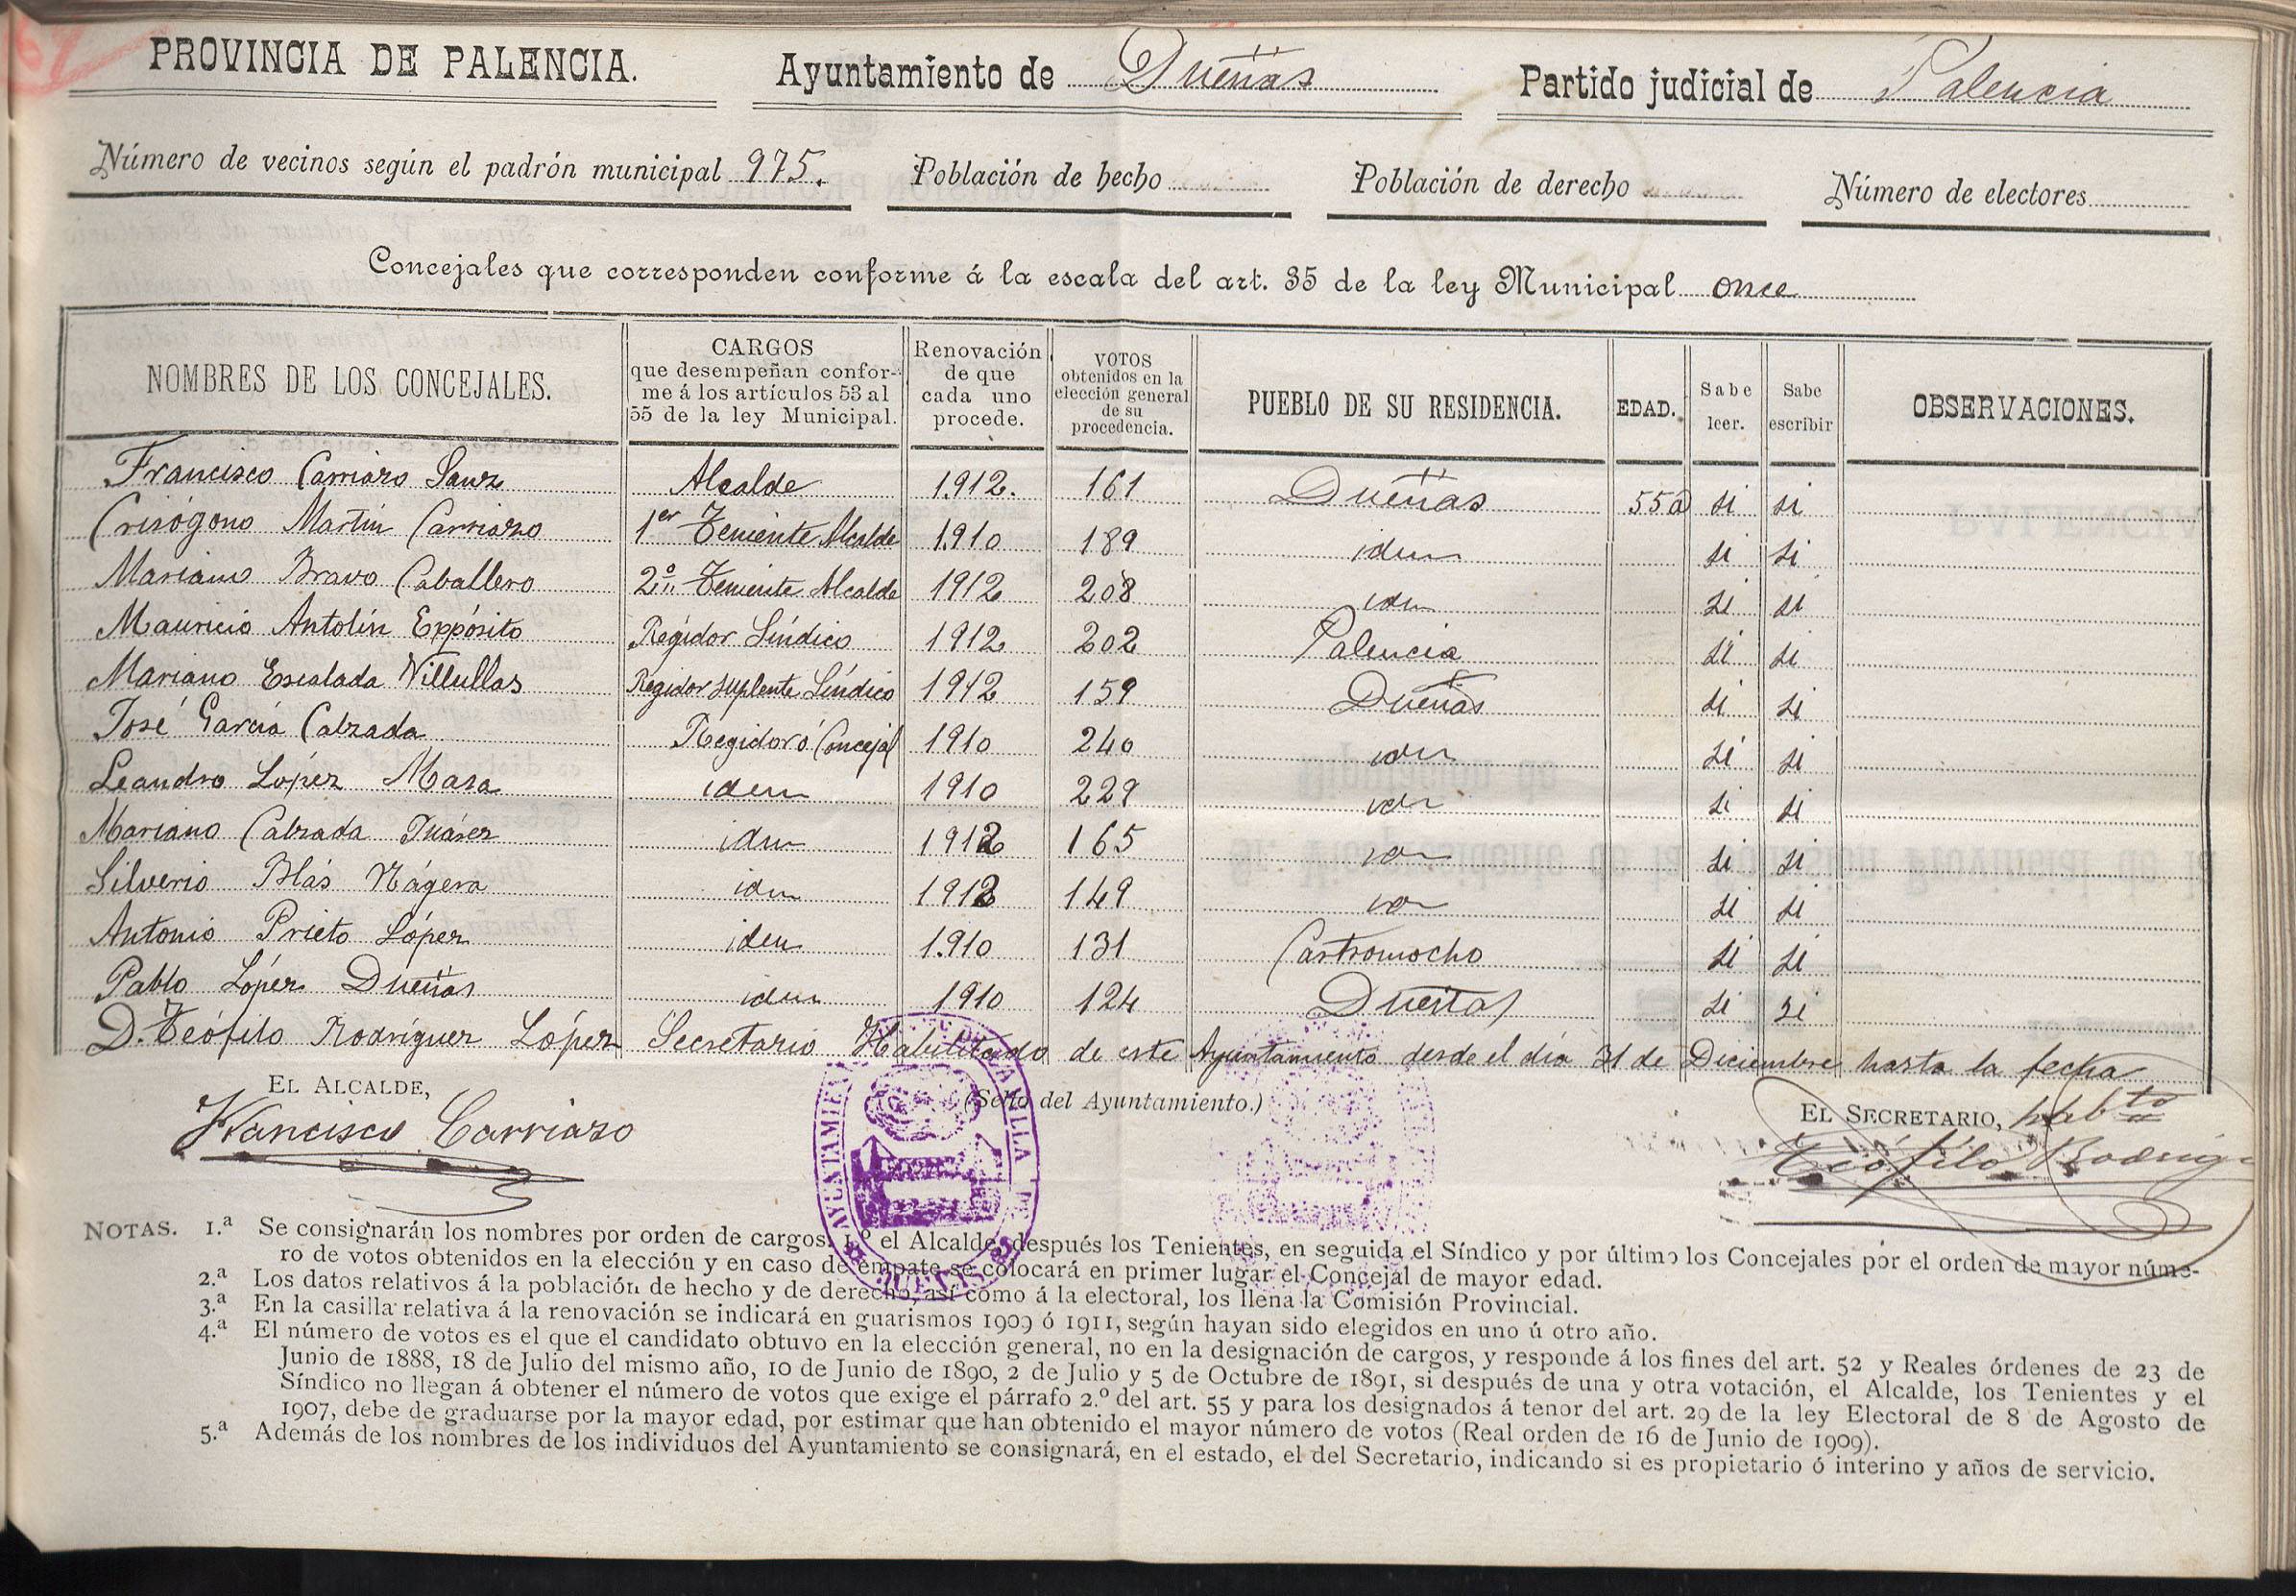 67
PROVINCIA DE PALENCIA. Ayuntamiento de Dueñas Partido judicial de Palencia
Número de vecinos según el padrón municipal 975. Población de hecho Población de derecho Número de electores
Concejales que corresponden conforme á la escala del art. 35 de la ley Municipal once
NOMBRES DE LOS CONCEJALES. CARGOS que desempeñan conforme á los artículos 53 al 55 de la ley Municipal. Renovación de que cada uno procede. VOTOS obtenidos en la elección general de su procedencia. PUEBLO DE SU RESIDENCIA. EDAD. Sabe leer. Sabe escribir OBSERVACIONES.
Francisco Carriazo Sanz Alcalde 1912. 161 Dueñas 55a si si
Crisógono Martín Carriazo 1er Teniente Alcalde 1910 189 idem si si
Mariano Bravo Caballero 2º Teniente Alcalde 1912 208 idem si si
Mauricio Antolín Expósito Regidor Síndico 1912 202 Palencia si si
Mariano Escalada Villullas Regidor suplente Síndico 1912 159 Dueñas si si
José García Calzada Regidor ó Concejal 1910 240 idem si si
Leandro López Masa idem 1910 229 idem si si
Mariano Calzada Juárez idem 1912 165 idem si si
Silverio Blás Nágera idem 1912 149 idem si si
Antonio Prieto López idem 1910 131 Castromocho si si
Pablo López Dueñas idem 1910 124 Dueñas si si
D. Teófilo Rodríguez López Secretario Habilitado de este Ayuntamiento desde el día 31 de Diciembre hasta la fecha
EL ALCALDE, (Sello del Ayuntamiento.) EL SECRETARIO, habto
Francisco Carriazo Teófilo Rodrig
AYUNTAMIENTO VILLA DE DUEÑAS
NOTAS. 1.ª Se consignarán los nombres por orden de cargos. 1.º el Alcalde, después los Tenientes, en seguida el Síndico y por último los Concejales por el orden de mayor núme-
ro de votos obtenidos en la elección y en caso de empate se colocará en primer lugar el Concejal de mayor edad.
2.ª Los datos relativos á la población de hecho y de derecho, así como á la electoral, los llena la Comisión Provincial.
3.ª En la casilla relativa á la renovación se indicará en guarismos 1909 ó 1911, según hayan sido elegidos en uno ú otro año.
4.ª El número de votos es el que el candidato obtuvo en la elección general, no en la designación de cargos, y responde á los fines del art. 52 y Reales órdenes de 23 de
Junio de 1888, 18 de Julio del mismo año, 10 de Junio de 1890, 2 de Julio y 5 de Octubre de 1891, si después de una y otra votación, el Alcalde, los Tenientes y el
Síndico no llegan á obtener el número de votos que exige el párrafo 2.º del art. 55 y para los designados á tenor del art. 29 de la ley Electoral de 8 de Agosto de
1907, debe de graduarse por la mayor edad, por estimar que han obtenido el mayor número de votos (Real orden de 16 de Junio de 1909).
5.ª Además de los nombres de los individuos del Ayuntamiento se consignará, en el estado, el del Secretario, indicando si es propietario ó interino y años de servicio.